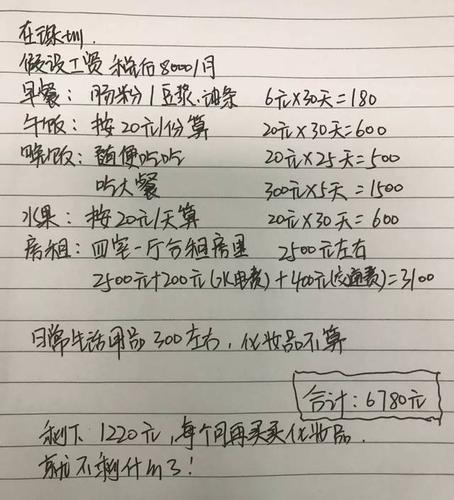 在深圳.
假设工资 税后8000/月
早餐：肠粉/豆浆、油条 6元×30天=180
午饭：按20元/份算 20元×30天=600
晚饭：随便吃吃 20元×25天=500
吃大餐 300元×5天=1500
水果：按20元/天算 20元×30天=600
房租：四室一厅合租房里 2500元左右
2500元+200元(水电费)+400元(交通费)=3100
日常生活用品300左右，化妆品不算
合计：6780元
剩下1220元，每个月再买买化妆品.
就不剩什么了！